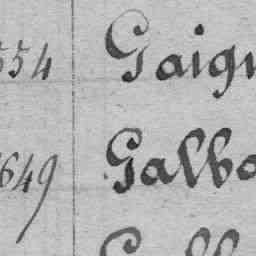 554 Gaign
649 Galbo